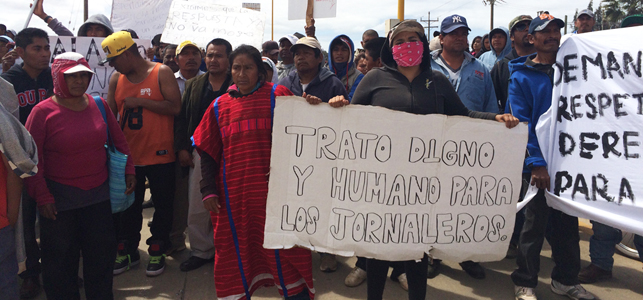 TRATO DIGNO
Y HUMANO PARA
LOS JORNALEROS.
RESPET
DERE
PARA